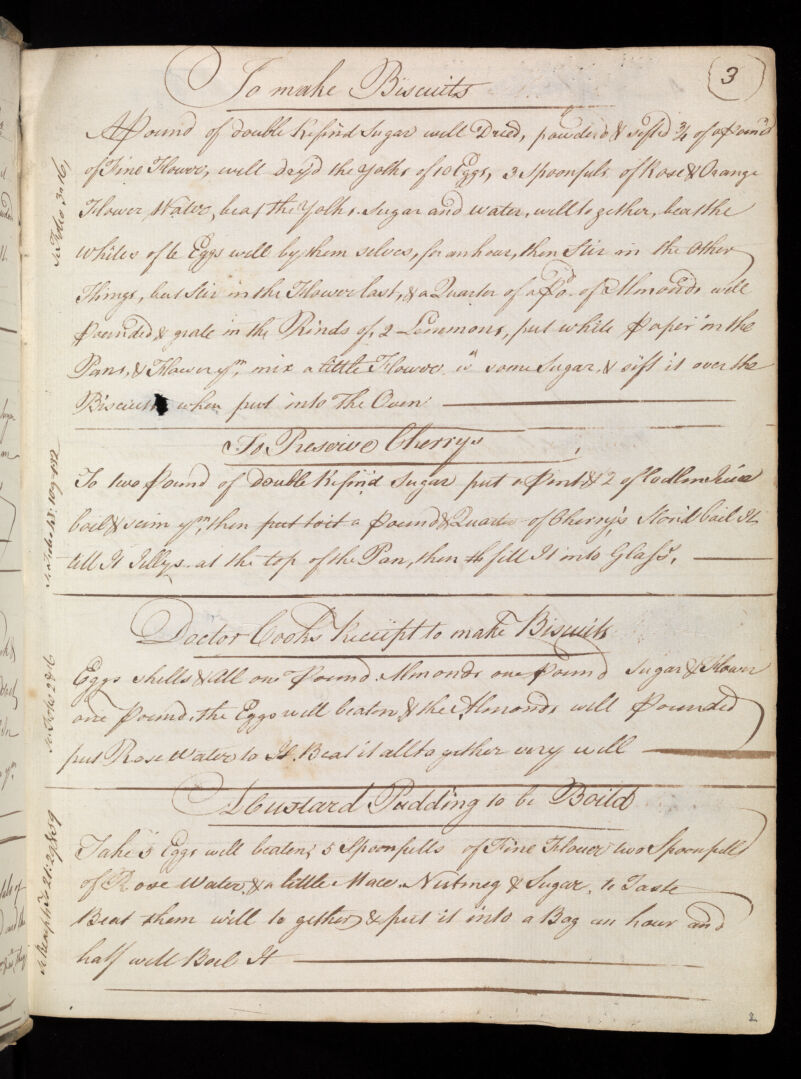 3
To make Biscuits
A Pound of double Refin'd Sugar well Dried, powder'd & sifted 3/4 of a Pound
of Fine Flower, well dry'd the Yolks of 10 Eggs, 3 Spoonfuls of Rose & Orange
Flower Water, beat the Yolks Sugar and water, well together, beat the
Whites of 6 Eggs well by them selves, for an hour, then Stir in the Other
Things, but Stir in the Flower last, & a Quarter of a Pd. of Almonds well
Pounded & grate in the Rinds of, 2 Lemmons, put white Paper in the
Pans, & Flower ym. mix a little Flower wth some Sugar, & sift it over the
Biscuits when put into The Oven
To Preserve Cherrys
To two Pound of double Refin'd Sugar put a Pint & 1/2 of Codlen Juice
boil & scim ym, then put to it a Pound & Quarter of Cherry's Ston'd boil It
till It Jillys at the top of the Pan, then fill It into Glass,
Doctor Cooks Receipt to make Biscuits
Eggs shells & All one Pound Almonds one Pound Sugar & Flower
one Pound, the Eggs well beaten & the Almonds well Pounded
put Rose Water to It. Beat it all together very well
A Custard Pudding to be Boild
Take 5 Eggs well beaten; 5 Spoonfulls of Fine Flower two Spoonfull
of Rose Water, & a little Mace Nutmeg & Sugar, to Taste
Beat them well to gether & put it into a Bag an hour and
half will Boil It
2